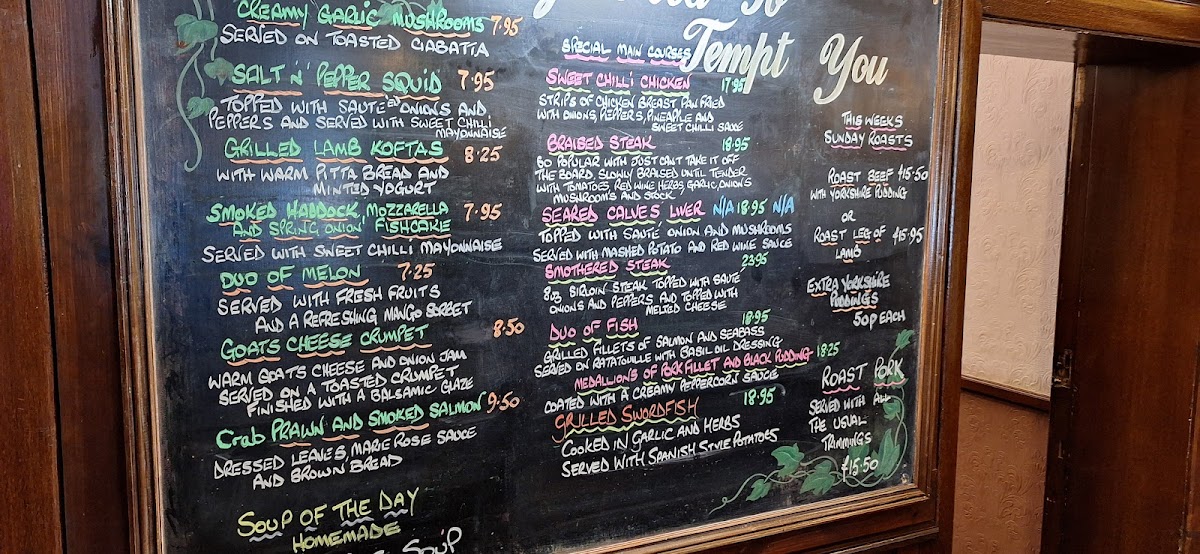 Tempt You
CREAMY GARLIC MUSHROOMS 7.95
SERVED ON TOASTED CIABATTA
SALT N' PEPPER SQUID 7.95
TOPPED WITH SAUTEED ONIONS AND
PEPPERS AND SERVED WITH SWEET CHILLI
MAYONNAISE
GRILLED LAMB KOFTAS 8.25
WITH WARM PITTA BREAD AND
MINTED YOGURT
SMOKED HADDOCK, MOZZARELLA 7.95
AND SPRING ONION FISHCAKE
SERVED WITH SWEET CHILLI MAYONNAISE
DUO OF MELON 7.25
SERVED WITH FRESH FRUITS
AND A REFRESHING MANGO SORBET
GOATS CHEESE CRUMPET 8.50
WARM GOATS CHEESE AND ONION JAM
SERVED ON A TOASTED CRUMPET
FINISHED WITH A BALSAMIC GLAZE
Crab PRAWN AND SMOKED SALMON 9.50
DRESSED LEAVES, MARIE ROSE SAUCE
AND BROWN BREAD
SOUP OF THE DAY
HOMEMADE
SOUP
SPECIAL MAIN COURSES
SWEET CHILLI CHICKEN 17.95
STRIPS OF CHICKEN BREAST PAN FRIED
WITH ONIONS, PEPPERS, PINEAPPLE AND
SWEET CHILLI SAUCE
BRAISED STEAK 18.95
SO POPULAR WITH JUST CANT TAKE IT OFF
THE BOARD SLOWLY BRAISED UNTIL TENDER
WITH TOMATOES, RED WINE HERBS, GARLIC, ONIONS
MUSHROOMS AND STOCK
SEARED CALVES LIVER N/A 18.95 N/A
TOPPED WITH SAUTE ONION AND MUSHROOMS
SERVED WITH MASHED POTATO AND RED WINE SAUCE
SMOTHERED STEAK 23.95
8oz SIRLOIN STEAK TOPPED WITH SAUTE
ONIONS AND PEPPERS AND TOPPED WITH
MELTED CHEESE
DUO OF FISH 18.95
GRILLED FILLETS OF SALMON AND SEABASS
SERVED ON RATATOUILLE WITH BASIL OIL DRESSING
MEDALLIONS OF PORK FILLET AND BLACK PUDDING 18.25
COATED WITH A CREAMY PEPPERCORN SAUCE
GRILLED SWORDFISH 18.95
COOKED IN GARLIC AND HERBS
SERVED WITH SPANISH STYLE POTATOES
THIS WEEKS
SUNDAY ROASTS
ROAST BEEF £15.50
WITH YORKSHIRE PUDDING
OR
ROAST LEG OF £15.95
LAMB
EXTRA YORKSHIRE
PUDDINGS
50p EACH
ROAST PORK
SERVED WITH ALL
THE USUAL
TRIMMINGS
£15.50